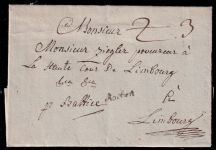 Monsieur 2 3
Monsieur Ziegler procureur à
La Haute Cour De Limbourg
pr Battice
à
Limbourg